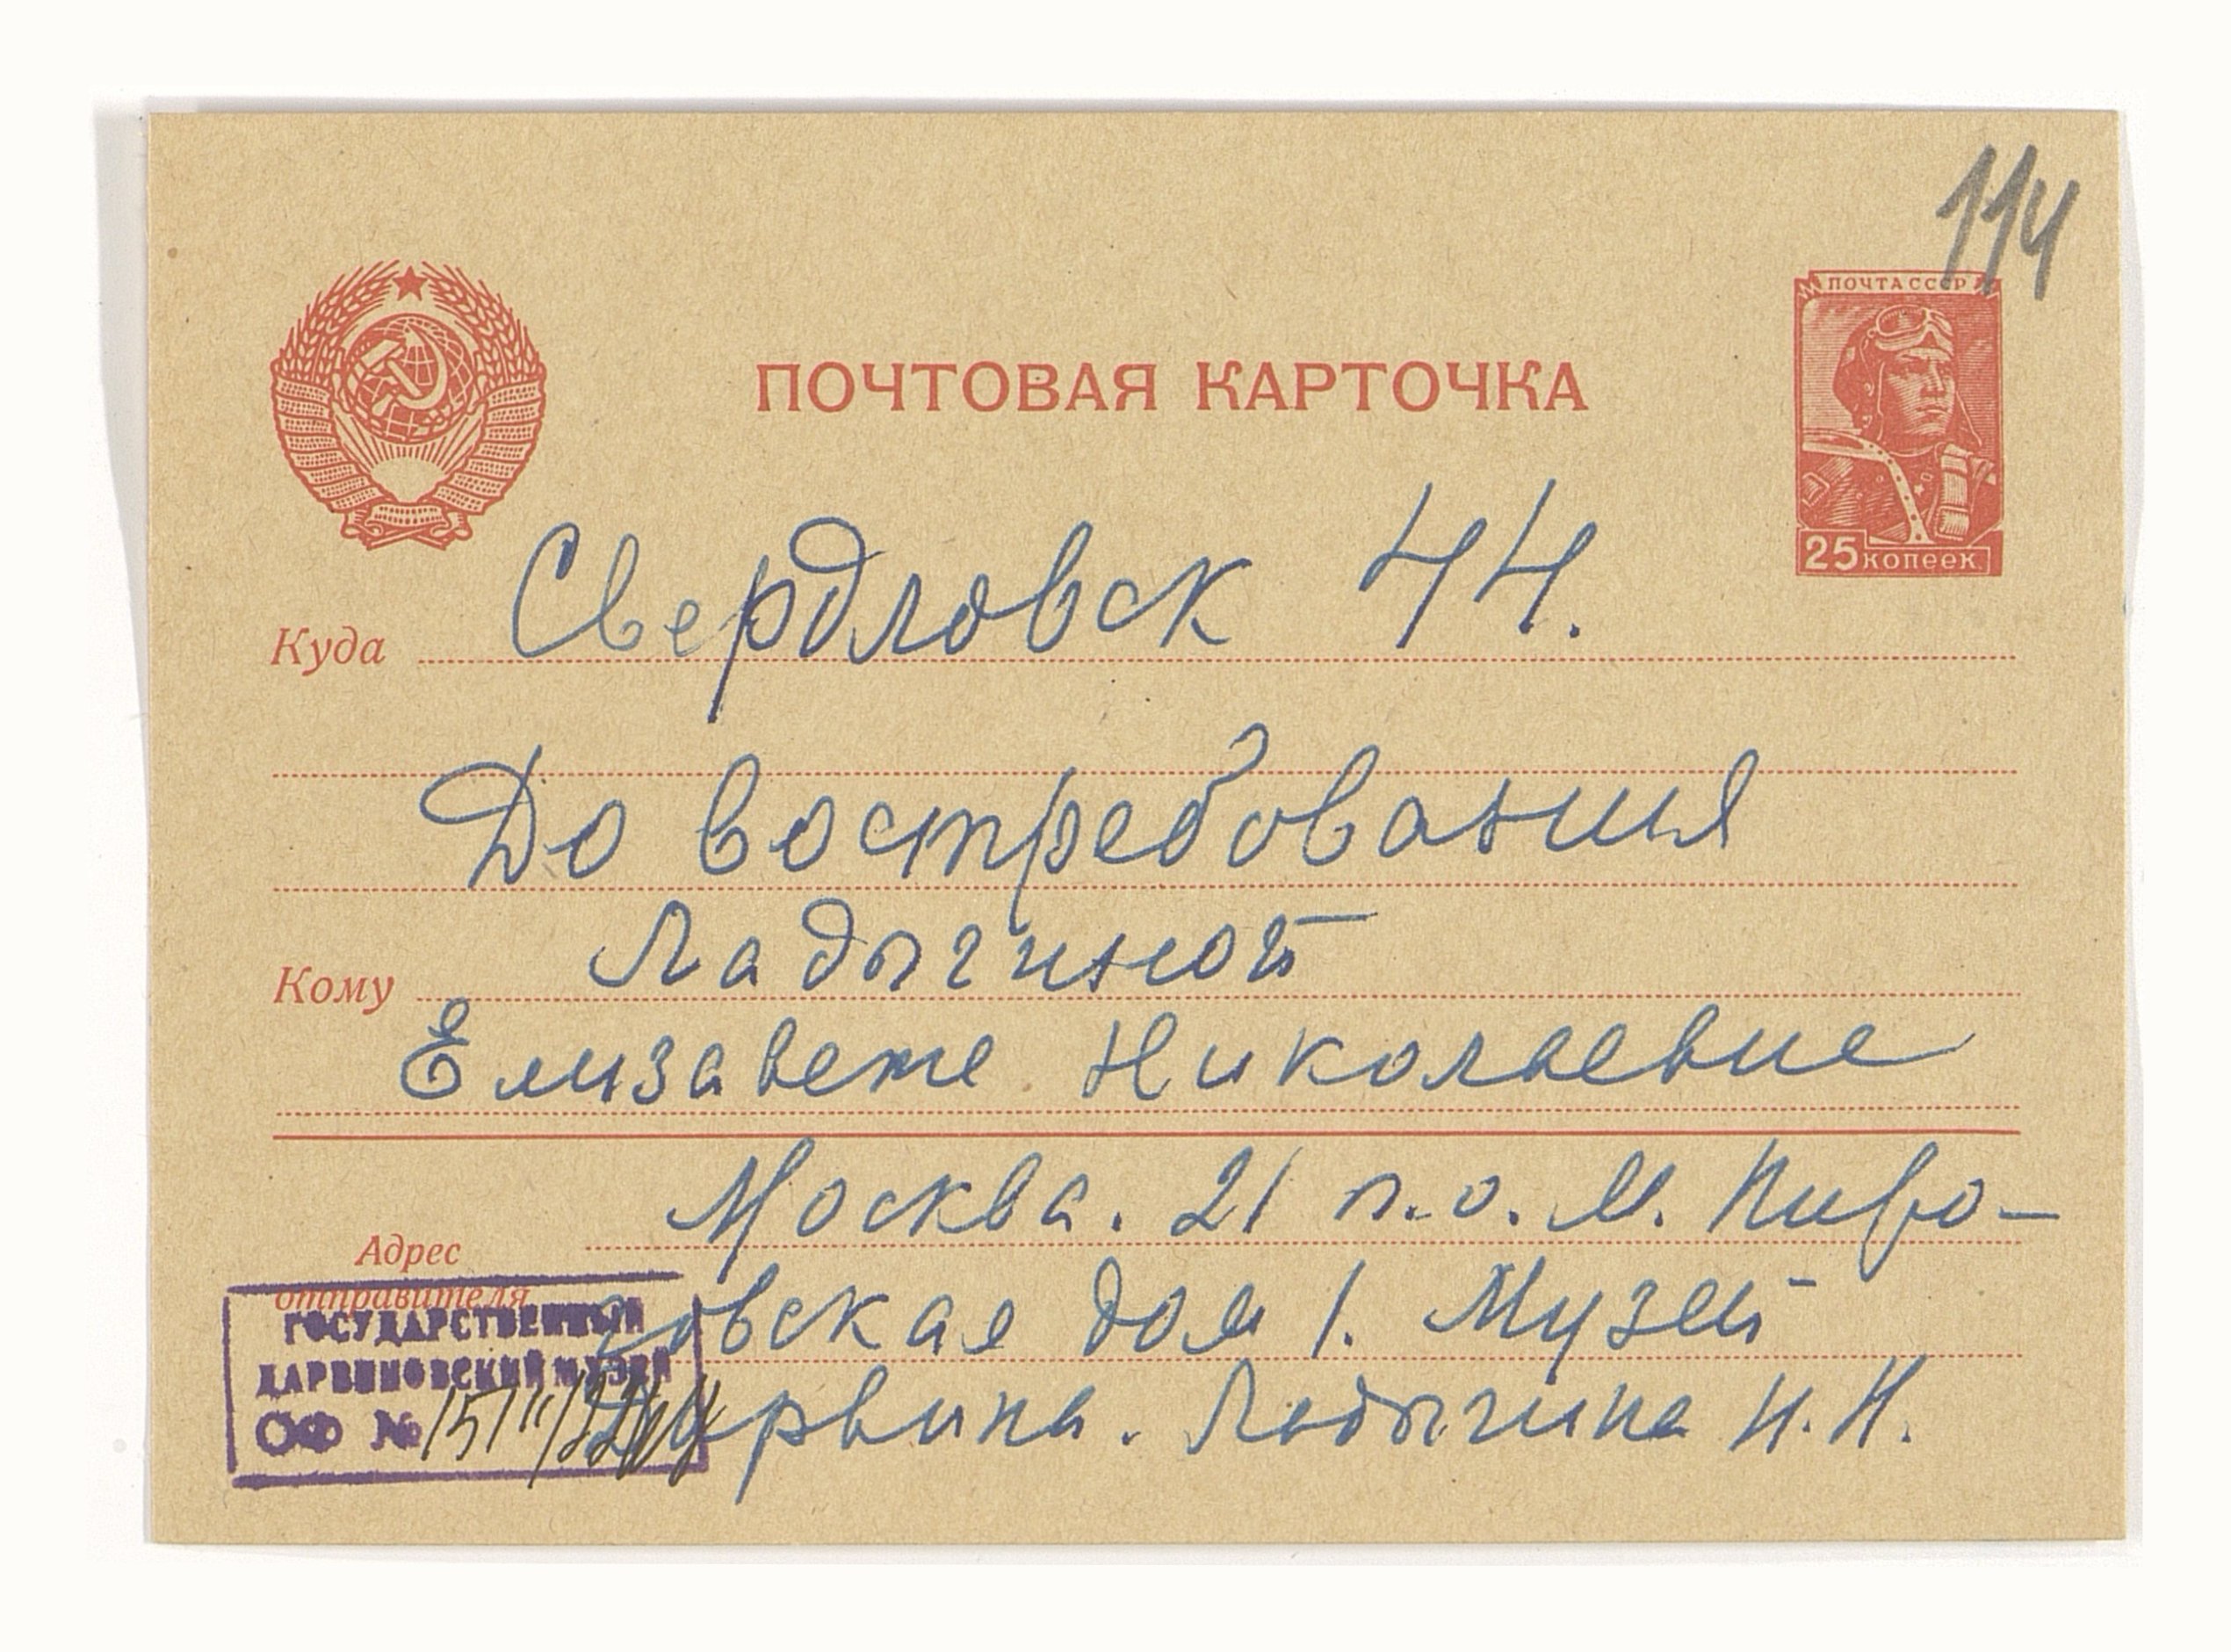 114
ПОЧТА СССР
ПОЧТОВАЯ КАРТОЧКА
25 копеек
Куда Свердловск 44.
До востребования
Кому Ладыгиной
Елизавете Николаевне
Москва. 21 п.о. М. Пиро-
Адрес
отправителя
говская дом 1. Музей
Дарвина. Ладыгина Н.Н.
ГОСУДАРСТВЕННЫЙ
ДАРВИНОВСКИЙ МУЗЕЙ
ОФ №